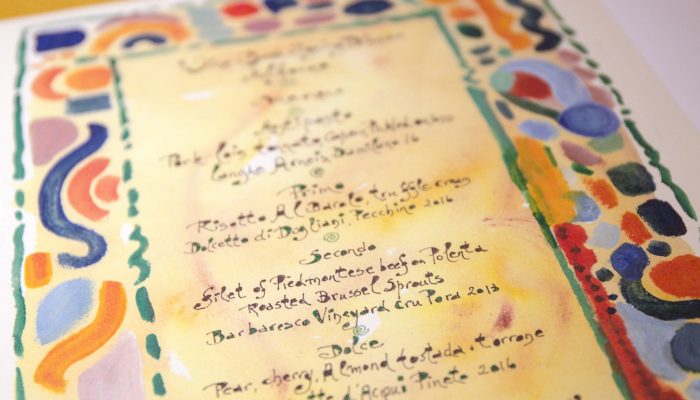 Antipasto
Pork loin tonnato, Capers, Pickled onions
Langhe Arneis, Damilano 16
Primo
Risotto Al Barolo, truffle cream
Dolcetto di Dogliani, Pecchinino 2016
Secondo
Filet of Piedmontese beef on Polenta
Roasted Brussel Sprouts
Barbaresco Vineyard Cru Pora 2013
Dolce
Pear, cherry, Almond tostada + torrone
d'Acqui Pineto 2016